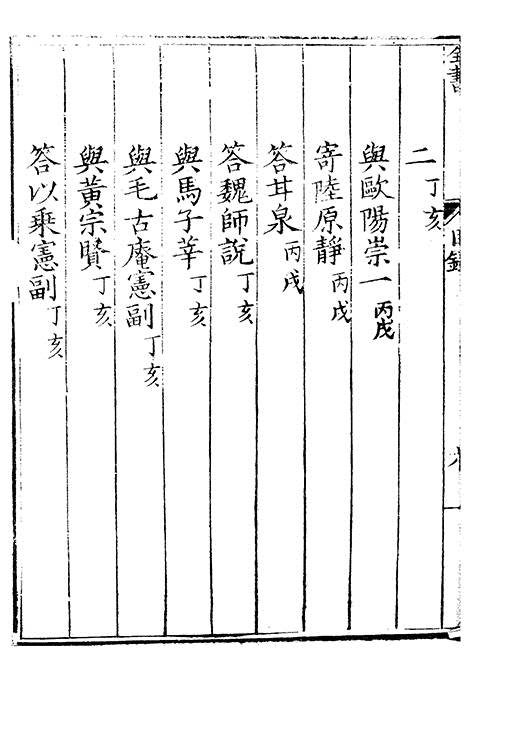 全書
目錄
二 丁亥
與歐陽崇一 丙戌
寄陸原靜 丙戌
答甘泉 丙戌
答魏師說 丁亥
與馬子莘 丁亥
與毛古庵憲副 丁亥
與黃宗賢 丁亥
答以乘憲副 丁亥